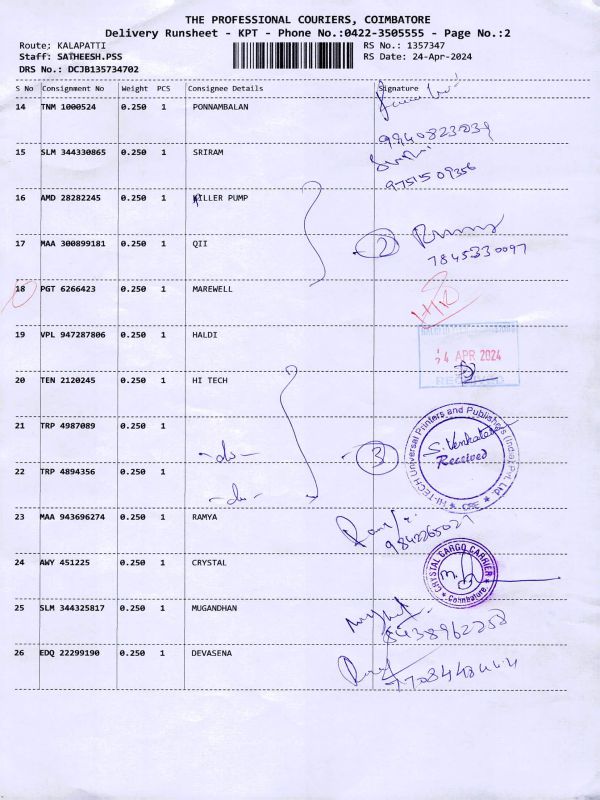 THE PROFESSIONAL COURIERS, COIMBATORE
Delivery Runsheet - KPT - Phone No.:0422-3505555 - Page No.:2
Route; KALAPATTI
RS No.: 1357347
Staff: SATHEESH.PSS
RS Date: 24-Apr-2024
DRS No.: DCJB135734702
S No Consignment No Weight PCS Consignee Details Signature
14 TNM 1000524 0.250 1 PONNAMBALAN
9940823039
15 SLM 344330865 0.250 1 SRIRAM
9751509356
16 AMD 28282245 0.250 1 KILLER PUMP
17 MAA 300899181 0.250 1 QII 2
7845330097
18 PGT 6266423 0.250 1 MAREWELL
19 VPL 947287806 0.250 1 HALDI
24 APR 2024
20 TEN 2120245 0.250 1 HI TECH
21 TRP 4987089 0.250 1
-do- 3
HI-TECH Universal Printers and Publishers (India) Pvt. Ltd. * CBE *
S. Venkatesh
Received
22 TRP 4894356 0.250 1
-do-
23 MAA 943696274 0.250 1 RAMYA
24 AWY 451225 0.250 1 CRYSTAL
CRYSTAL CARGO CARRIER * Coimbatore *
25 SLM 344325817 0.250 1 MUGANDHAN
8438962258
26 EDQ 22299190 0.250 1 DEVASENA